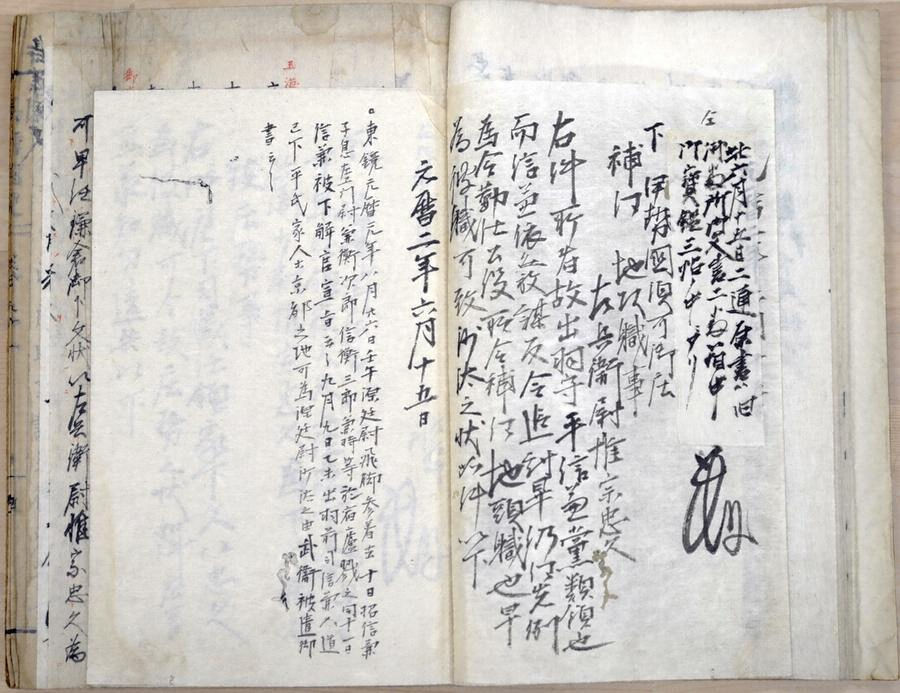 此六月十五日二通原書ハ旧
二番箱中
御寶鑑三帖中ニアリ
下 伊勢國須可御庄
補任 地頭職事
左兵衛尉惟宗忠久
右件所者故出羽守平信兼黨類領也
而信兼依發謀反令追討畢仍任先例
為令勤仕公役所令補任地頭職也早
為彼職可致沙汰之状如件以下
元暦二年六月十五日
○東鏡元暦元年八月廿六日壬午源廷尉飛脚参着去十日招信兼
子息左門尉兼衡次郎信衡三郎兼時等於宿廬戮之同十一日
信兼被下解官宣旨云々九月九日乙未出羽前司信兼入道
已下平氏家人等京都之地可為源廷尉沙汰之由武衛被遣御
書云々
可早任鎌倉御下文状以左兵衛尉惟宗忠久為